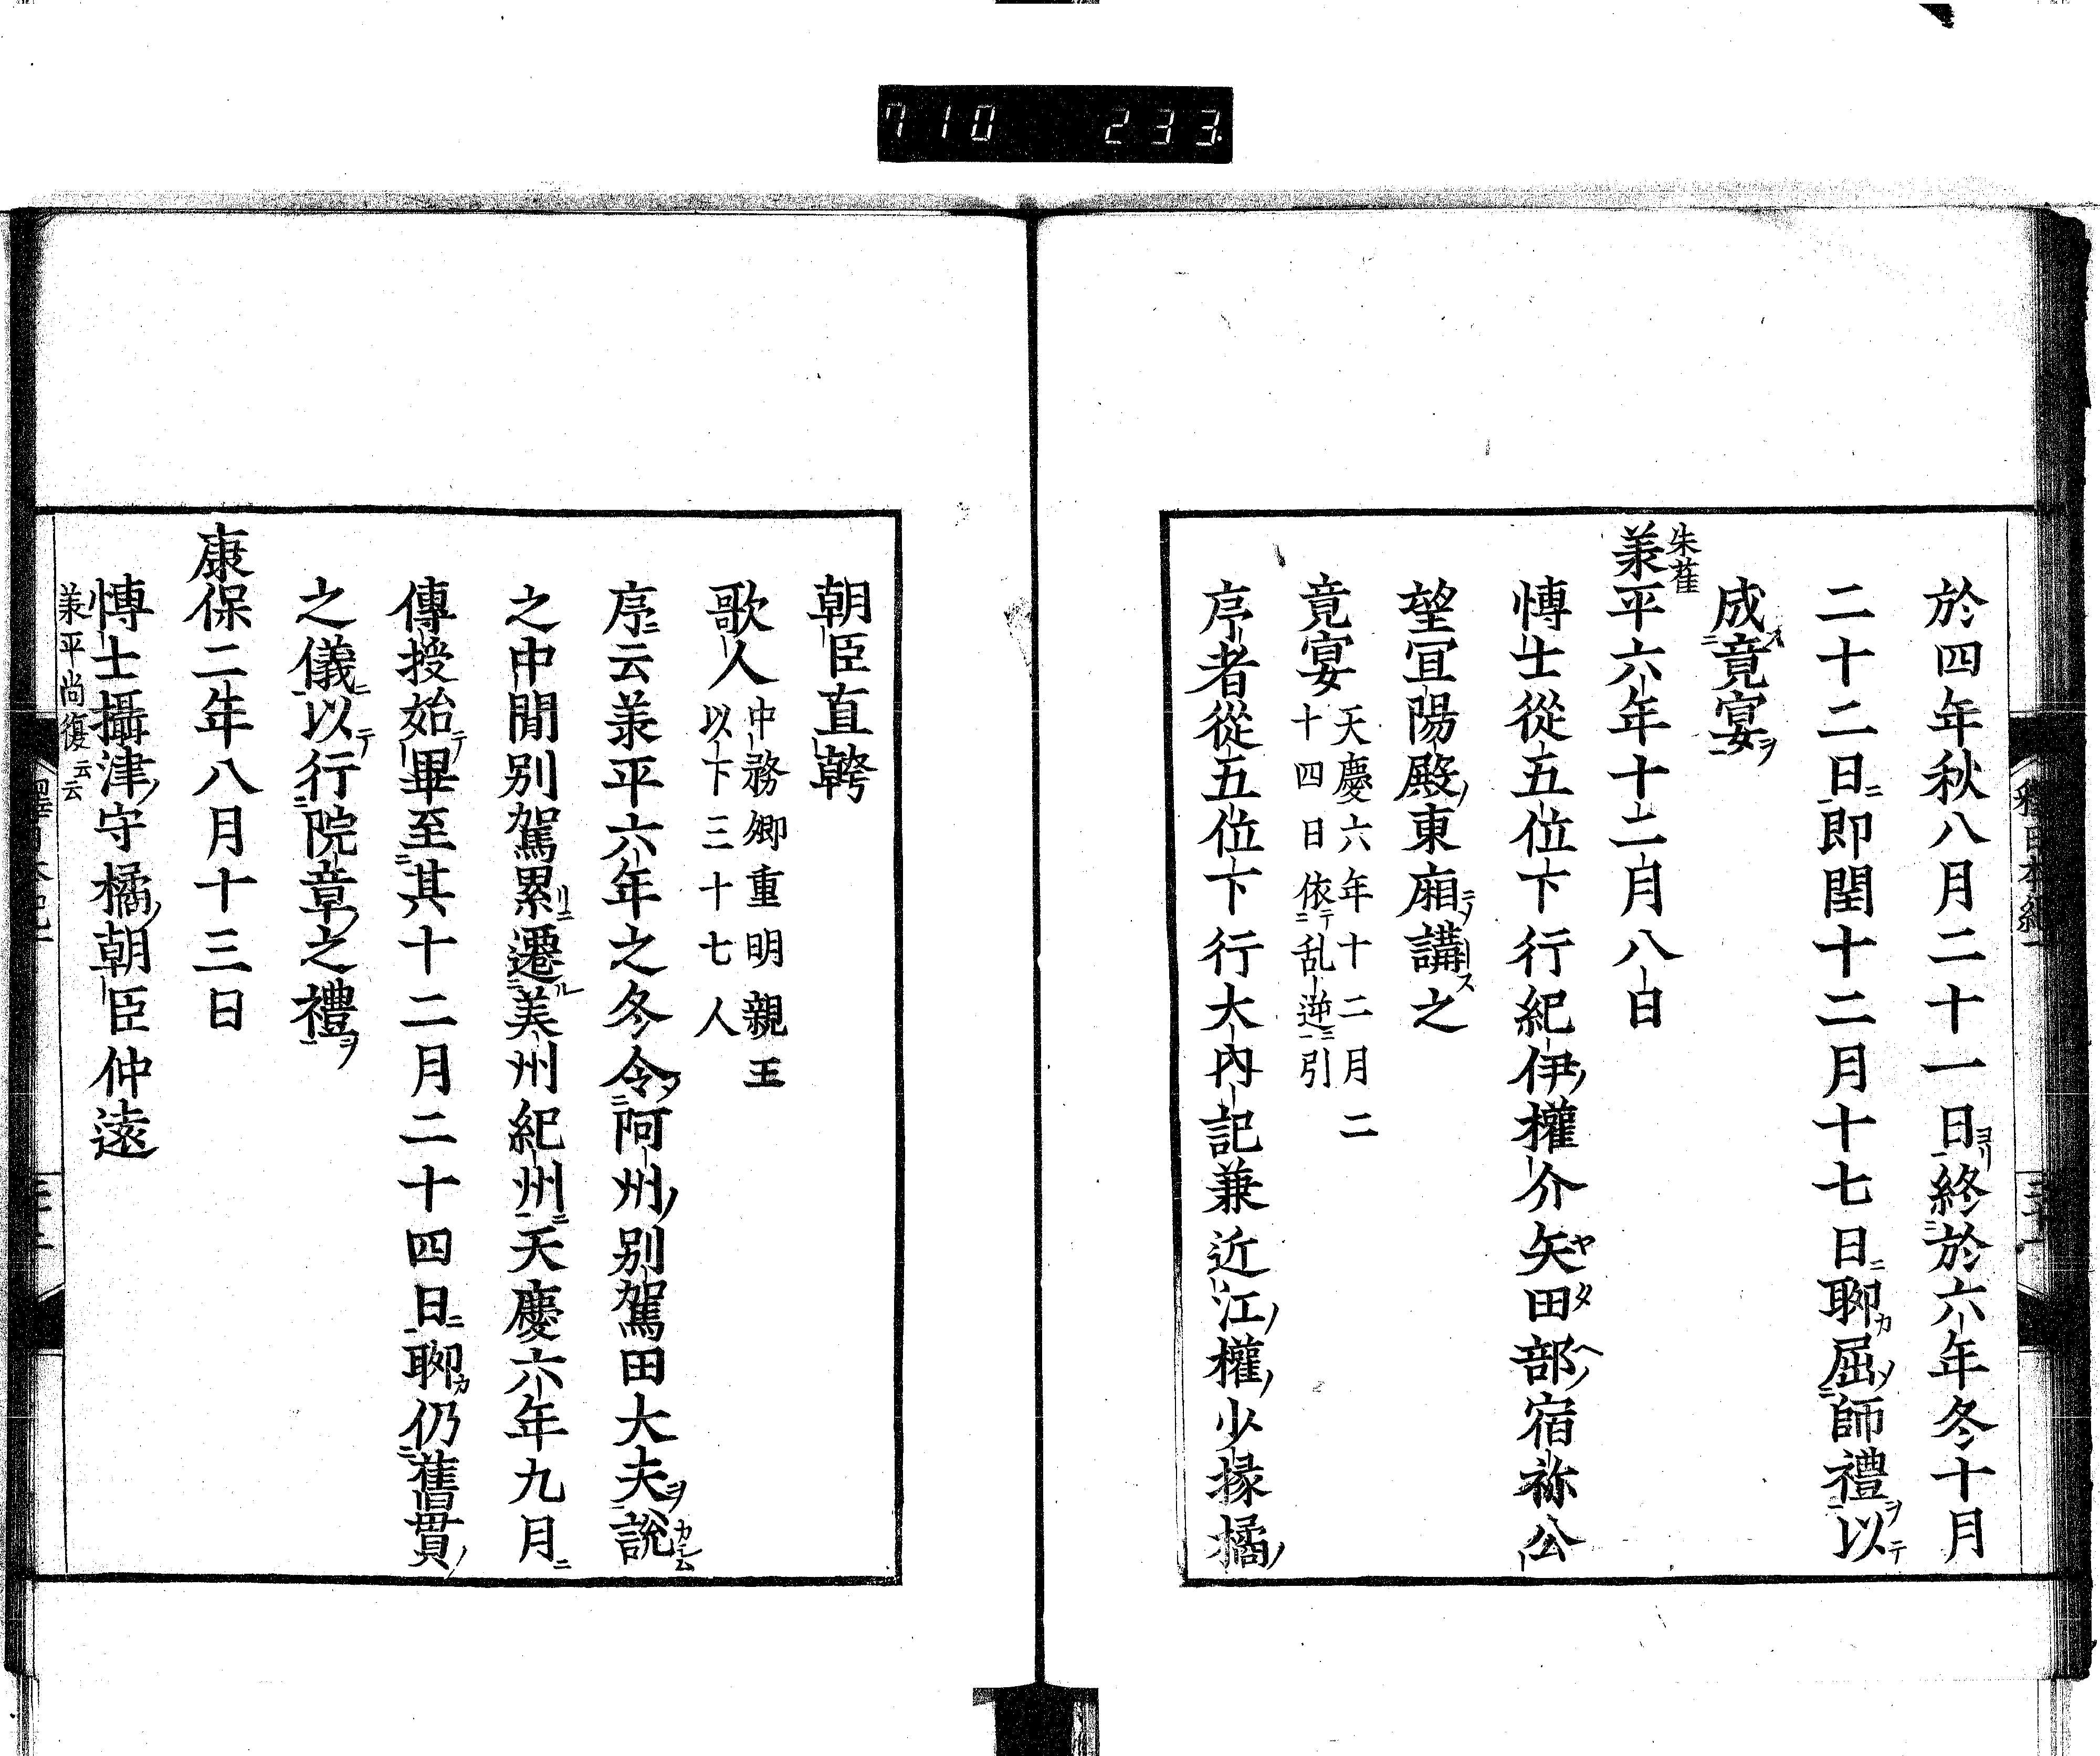 710 233
於四年秋八月二十一日ヨリ終於六年冬十月
二十二日ニ即閏十二月十七日ニ聊カ屈ノ師禮ヲ以テ
成ス竟宴ヲ
朱雀
羕平六年十二月八日
愽士從五位下行紀伊ノ權介矢ヤ田タ部ヘノ宿祢公
望冝陽殿ノ東廂ニメ講ス之
竟宴
天慶六年十二月二
十四日依テ乱逆ニ引
序者從五位下行大内記兼近江ノ權ノ少掾橘ノ
朝臣直幹
歌人
中務卿重明親王
以下三十七人
序ニ云羕平六年之冬令阿州ノ別駕田大夫ヲ説カ
之中間別駕累リニ遷ル美州紀州ニ天慶六年九月ニ
傳授始テ畢至其十二月二十四日ニ聊カ仍舊貫ノ
之儀ニ以テ行院章ノ之禮ヲ
康保二年八月十三日
愽士攝津ノ守橘ノ朝臣仲遠
羕平尚復云云